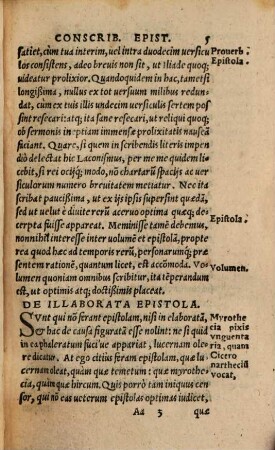 CONSCRIB. EPIST. 5
satiet, cum tua interim, uel intra duodecim uersicu
los consistens, adeo breuis non sit, ut Iliade quoq;
uideatur prolixior. Quandoquidem in hac, tametsi
longißima, nullus ex tot uersuum milibus redun-
dat, cum ex tuis illis undecim uersiculis sertem pos
sint resecari:atq; ita sane resecari, ut reliqui quoq;
ob sermonis in eptiam immensæ prolixitatis nauseã
faciant. Quare, si quem in scribendis literis impen
diò delectat hic Laconismus, per me me quidem li-
cebit, si rei ocijq; modo, nõ chartarũ spacijs ac uer
siculorum numero breuitatem metiatur. Nec ita
scribat paucißima, ut ex ijs ipsis superfint quædã,
sed ut uelut è diuite rerũ aceruo optima quæq; de-
cerpta fuisse appareat. Meminisse tamẽ debemus,
nonnihil interesse inter uolumẽ et epistolã, propte
rea quod hæc ad temporis rerũ, personarumq; præ
sentem rationẽ, quantum licet, est accõmodãda. Vo
lumen quoniam omnibus scribitur, ita tẽperandum
est, ut optimis atq; doctißimis placeat.
DE ILLABORATA EPISTOLA.
SVnt qui nõ ferant epistolam, nisi in elaboratã,
& hac de causa figuratã esse nolint: ne si quid
in ea phaleratum fuci'ue appariat, lucernam ole-
re dicatur. At ego citius feram epistolam, quæ lu-
cernam oleat, quàm quæ temetum: quæ myrothe-
cia, quàm quæ hircum. Quis porrò tam iniquus cen
sor, qui nõ eas ueterum epistolas optimas iudicet,
Aa 3 quæ
Prouerb
Epistola.
Epistola.
Volumen.
Myrothe
cia pixis
vnguenta
ria, quam
Cicero
nartheciũ
vocat,